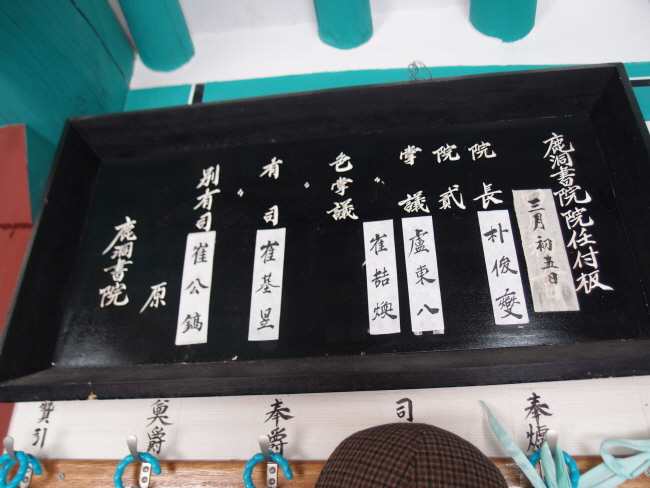 鹿洞書院院任付板
三月初五日
院長
朴俊燮
院貳
掌議
盧東八
〃
崔喆煥
色掌議
〃
有司
崔基昱
〃
別有司
崔公鎬
原
鹿洞書院
奉爐
司
奉爵
奠爵
贊引